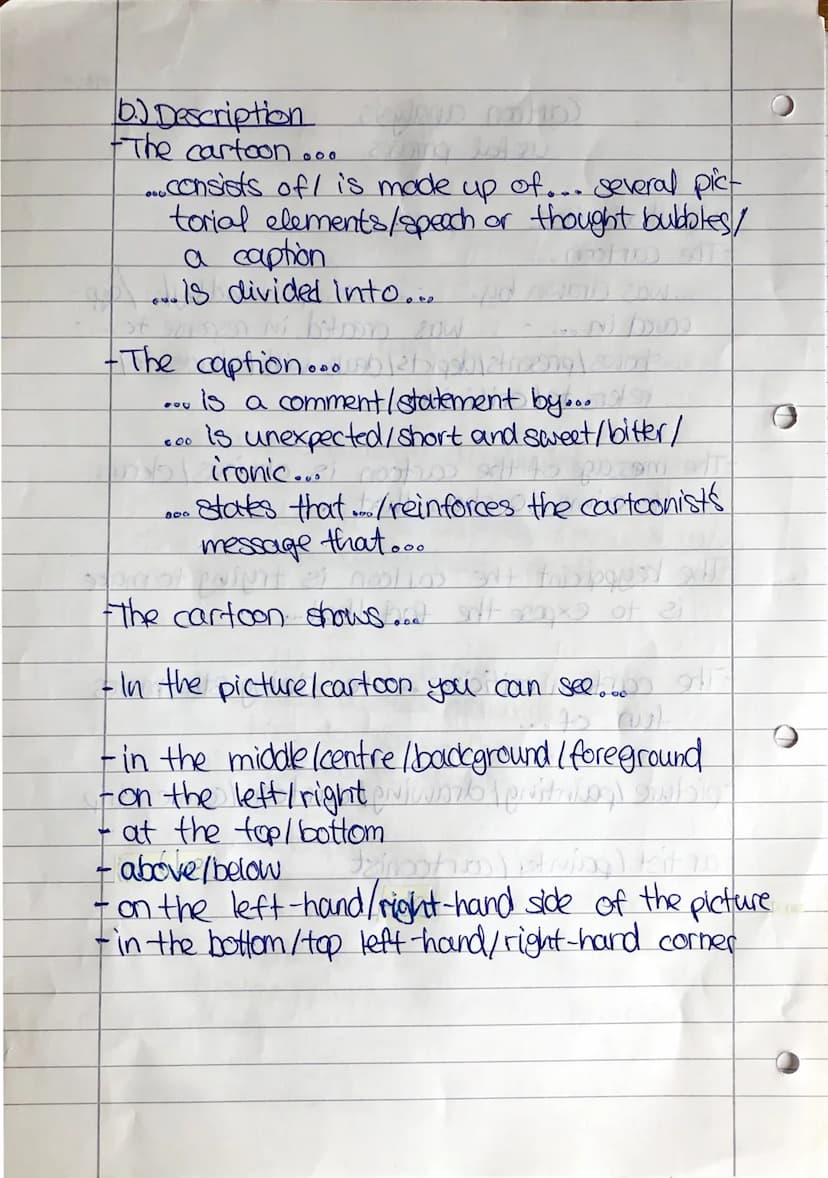 b.) Description
-The cartoon ...
...consists of/ is made up of... several pic-
torial elements/speech or thought bubbles/
a caption
... is divided into...
-The caption...
... is a comment/statement by...
... is unexpected/short and sweet/bitter/
ironic...
... states that .../reinforces the cartoonist's
message that...
-The cartoon shows...
- In the picture/cartoon you can see...
- in the middle/centre/background/foreground
- on the left/right
- at the top/bottom
- above/below
- on the left-hand/right-hand side of the picture
- in the bottom/top left-hand/right-hand corner